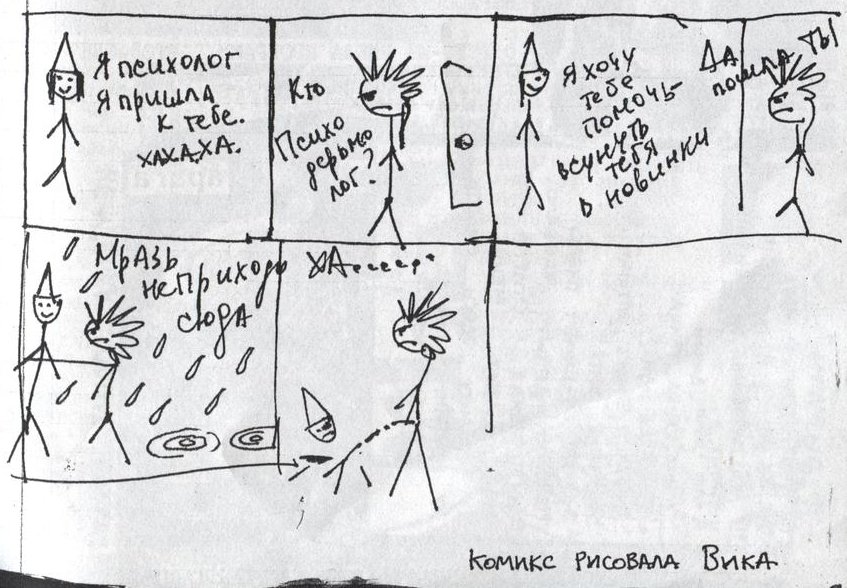 Я психолог
Я пришла
к тебе.
ХАХАХА.
Кто
Психо
дерьмо
лог?
Я хочу
тебе
помочь
всунуть
тебя
в новинки
ДА
пошла ты
Мразь
не приходи
сюда
ХА........
Комикс рисовала Вика